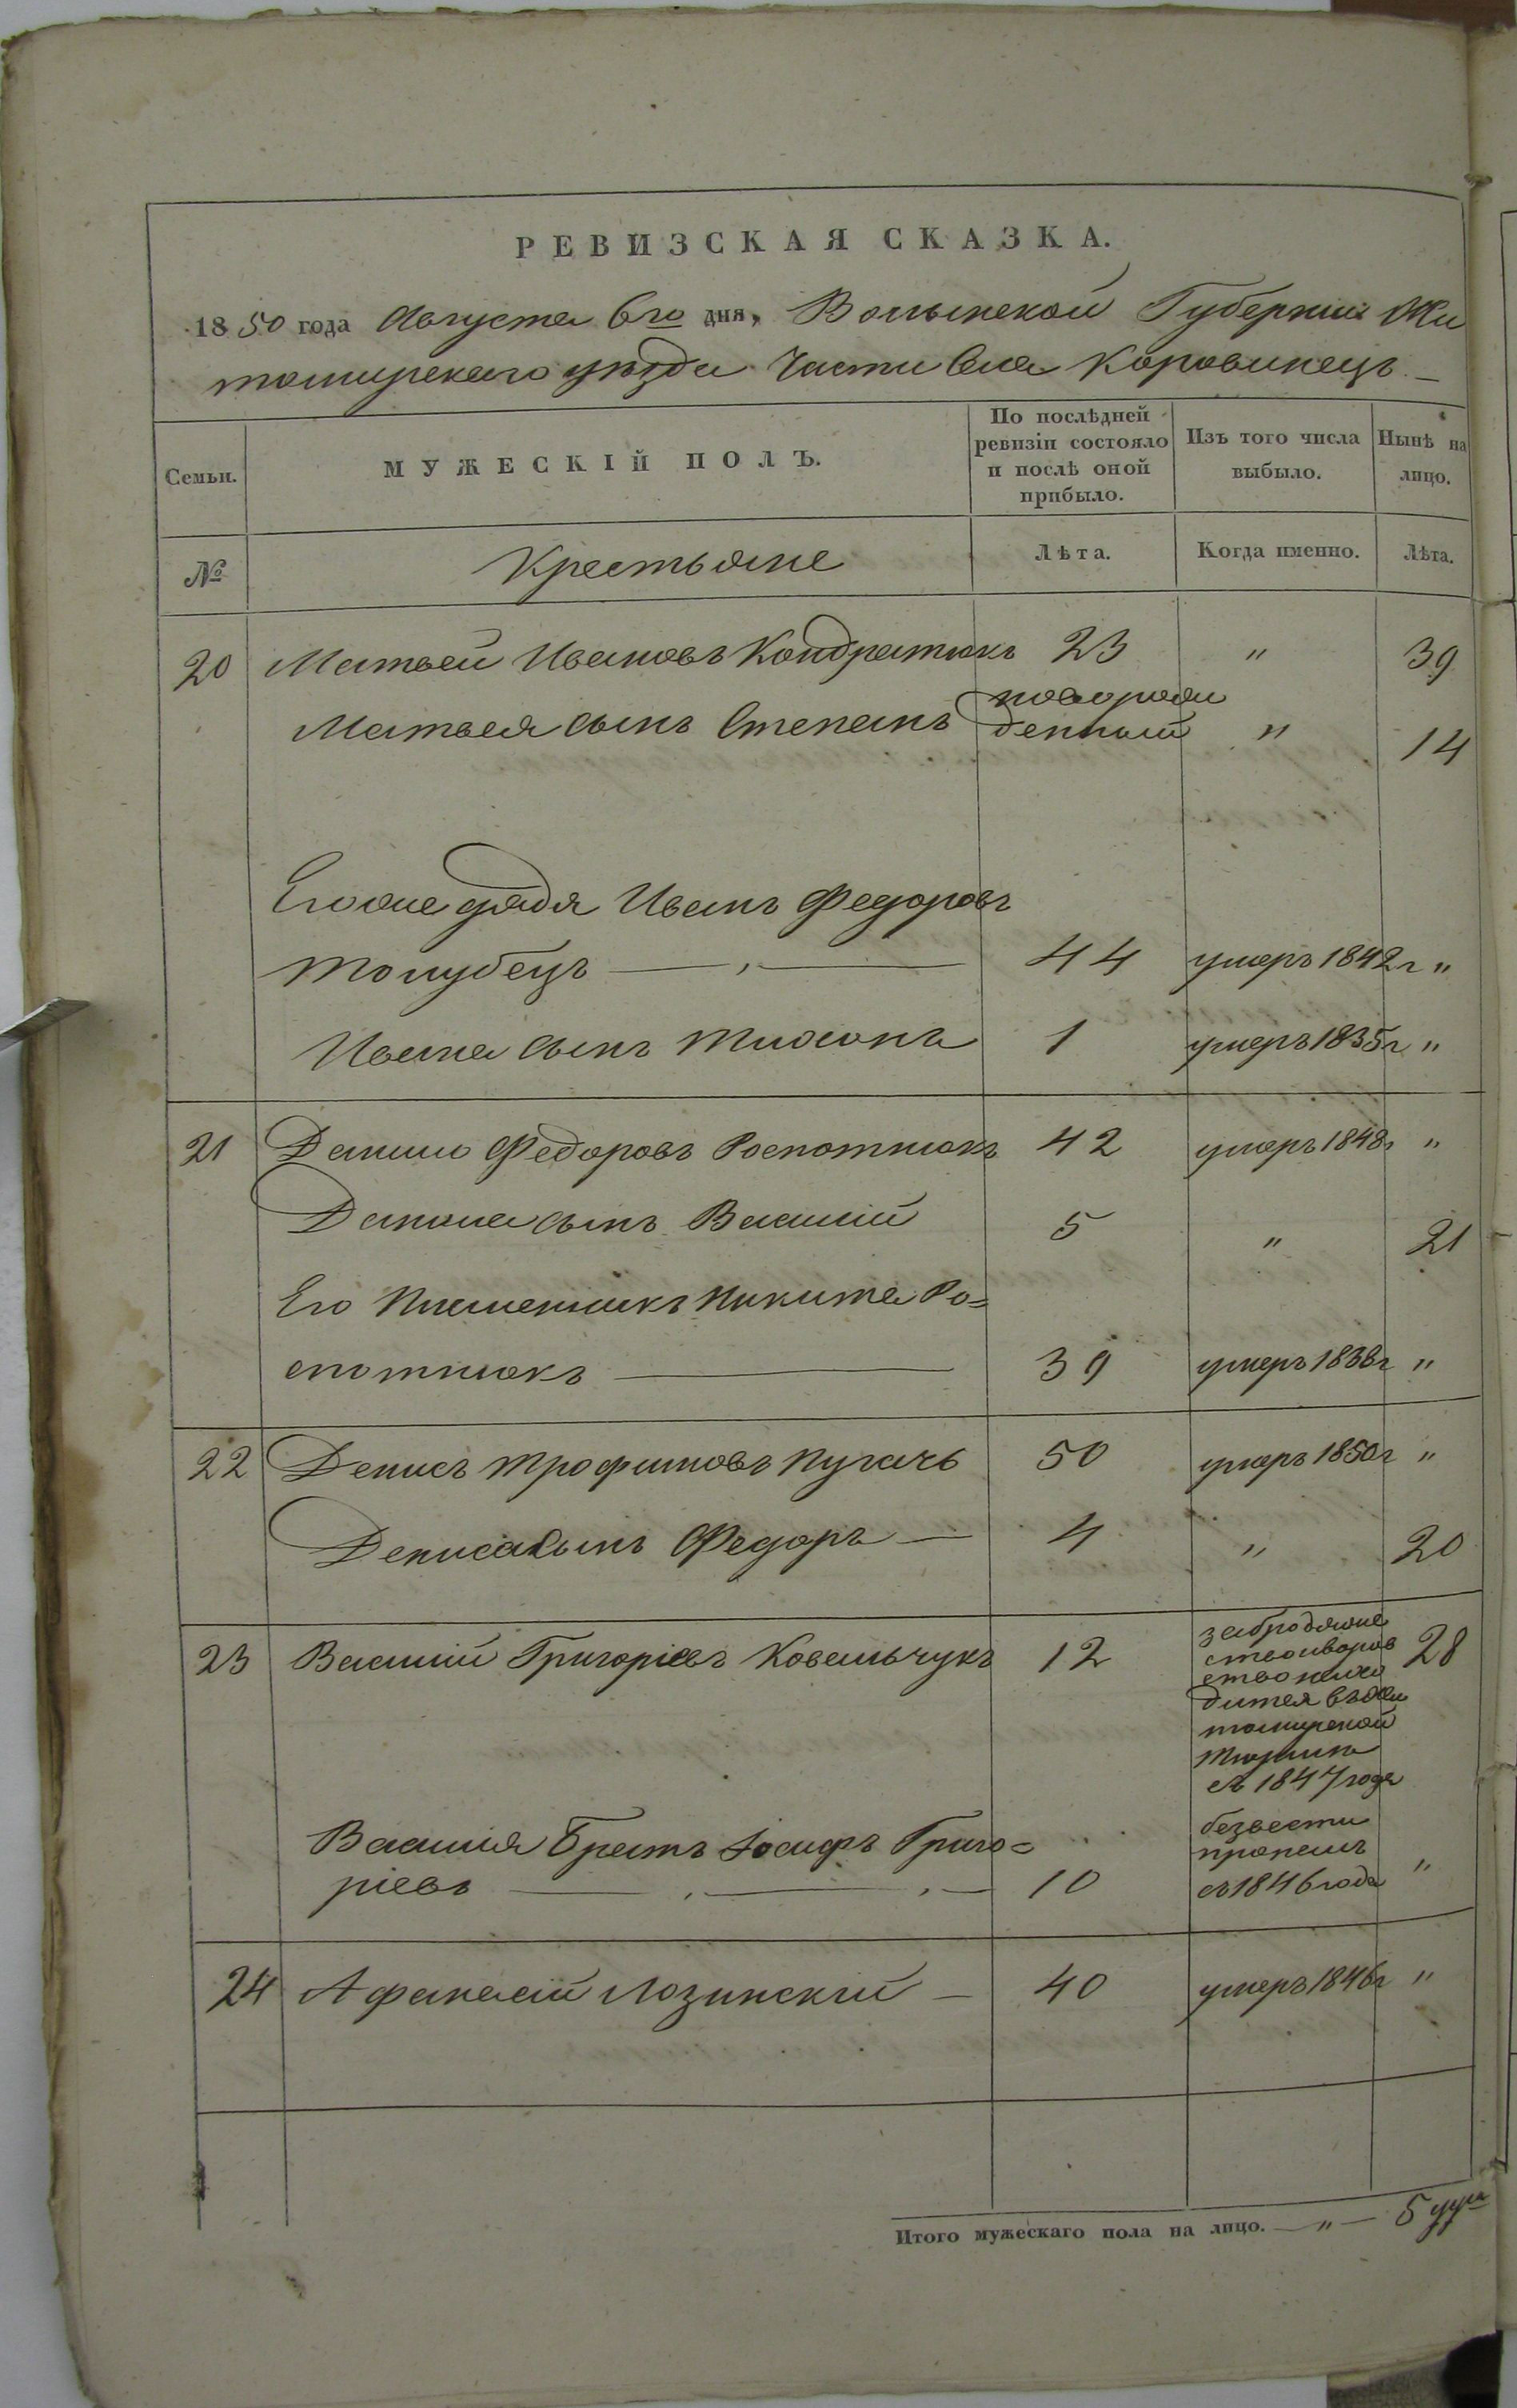 РЕВИЗСКАЯ СКАЗКА.
1850 года Августа 6го дня, Волынской Губернии Жи
томирскаго уѣзда Части Села Коровинецъ. —
Семьи.
МУЖЕСКІЙ ПОЛЪ.
По послѣдней ревизіи состояло и послѣ оной прибыло.
Изъ того числа выбыло.
Нынѣ на лицо.
№ Крестьяне Лѣта. Когда именно. Лѣта.
20 Матвей Ивановъ Кондратюкъ 23 " 39
Матвея сынъ Степанъ новорож
денный " 14
Егоже дядя Иванъ Федоровъ
Голубецъ — 44 умеръ 1842г "
Ивана сынъ Тихонъ 1 умеръ 1835г "
21 Данило Федоровъ Роспотнюкъ 42 умеръ 1848г "
Данила сынъ Василій 5 " 21
Его Племенникъ Никита Ро=
спотнюкъ — 39 умеръ 1838г "
22 Денисъ Трофимовъ Пугачь 50 умеръ 1850г "
Дениса сынъ Федоръ — 4 " 20
23 Василій Григоріевъ Ковальчукъ 12 28
за бродяже
ство и воров
ство нахо
дится въ Жи
томирской
с 1847 года
Василія Братъ Іосифъ Григо=
ріевъ — 10 "
безвести
пропалъ
съ 1846 года
24 Афанасій Лозинскій — 40 умеръ 1846г "
Итого мужескаго пола на лицо. — " — 5 душ